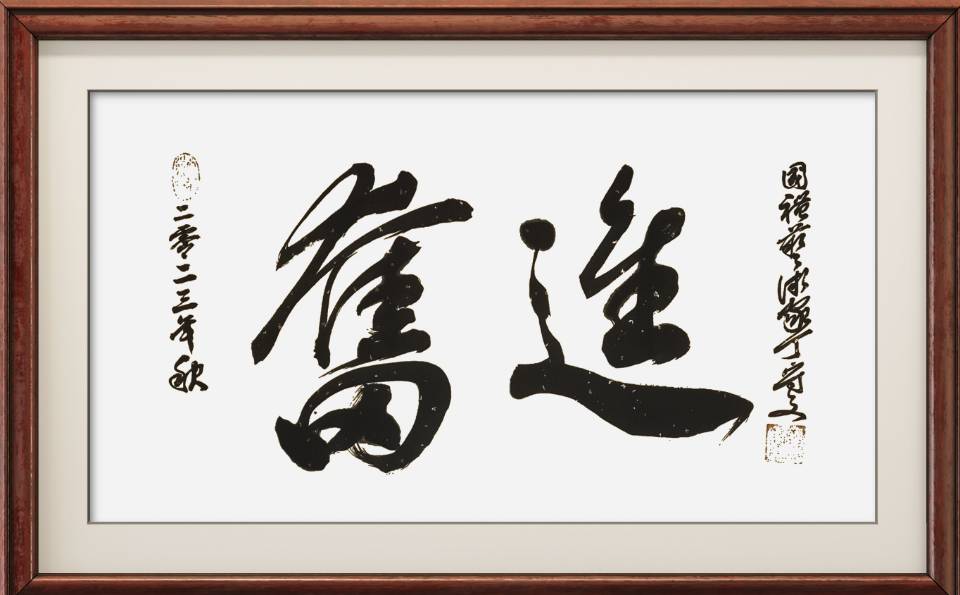 二零二三年秋
奮進
國禮藝術家丁